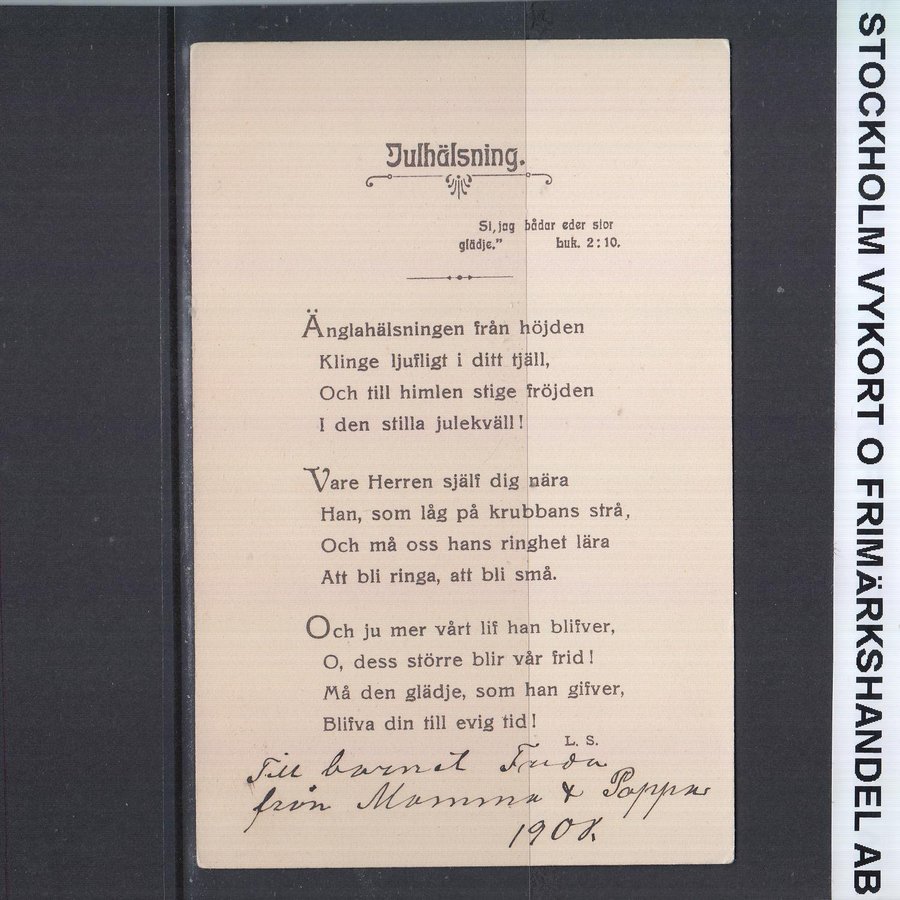 Julhälsning.
Si, jag bådar eder stor
glädje.” Luk. 2:10.
Änglahälsningen från höjden
Klinge ljufligt i ditt tjäll,
Och till himlen stige fröjden
I den stilla julekväll!
Vare Herren själf dig nära
Han, som låg på krubbans strå,
Och må oss hans ringhet lära
Att bli ringa, att bli små.
Och ju mer vårt lif han blifver,
O, dess större blir vår frid!
Må den glädje, som han gifver,
Blifva din till evig tid!
L. S.
Till barnet Frida
från Mamma & Pappa
1908.
STOCKHOLM VYKORT O FRIMÄRKSHANDEL AB